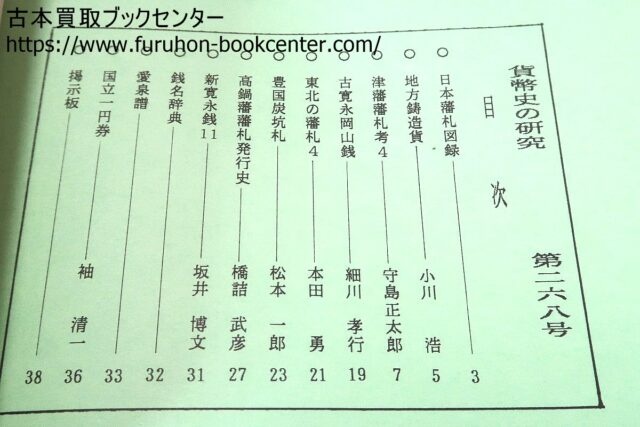 古本買取ブックセンター
https://www.furuhon-bookcenter.com/
貨幣史の研究 第二六八号
目次
○日本藩札図録 3
○地方鋳造貨 小川 浩 5
○津藩藩札考4 守島正太郎 7
○古寛永岡山銭 細川 孝行 19
○東北の藩札4 本田 勇 21
○豊国炭坑札 松本 一郎 23
○高鍋藩藩札発行史 橋詰 武彦 27
○新寛永銭11 坂井 博文 31
○銭名辞典 32
○愛泉譜 33
○国立一円券 袖 清一 36
○掲示板 38